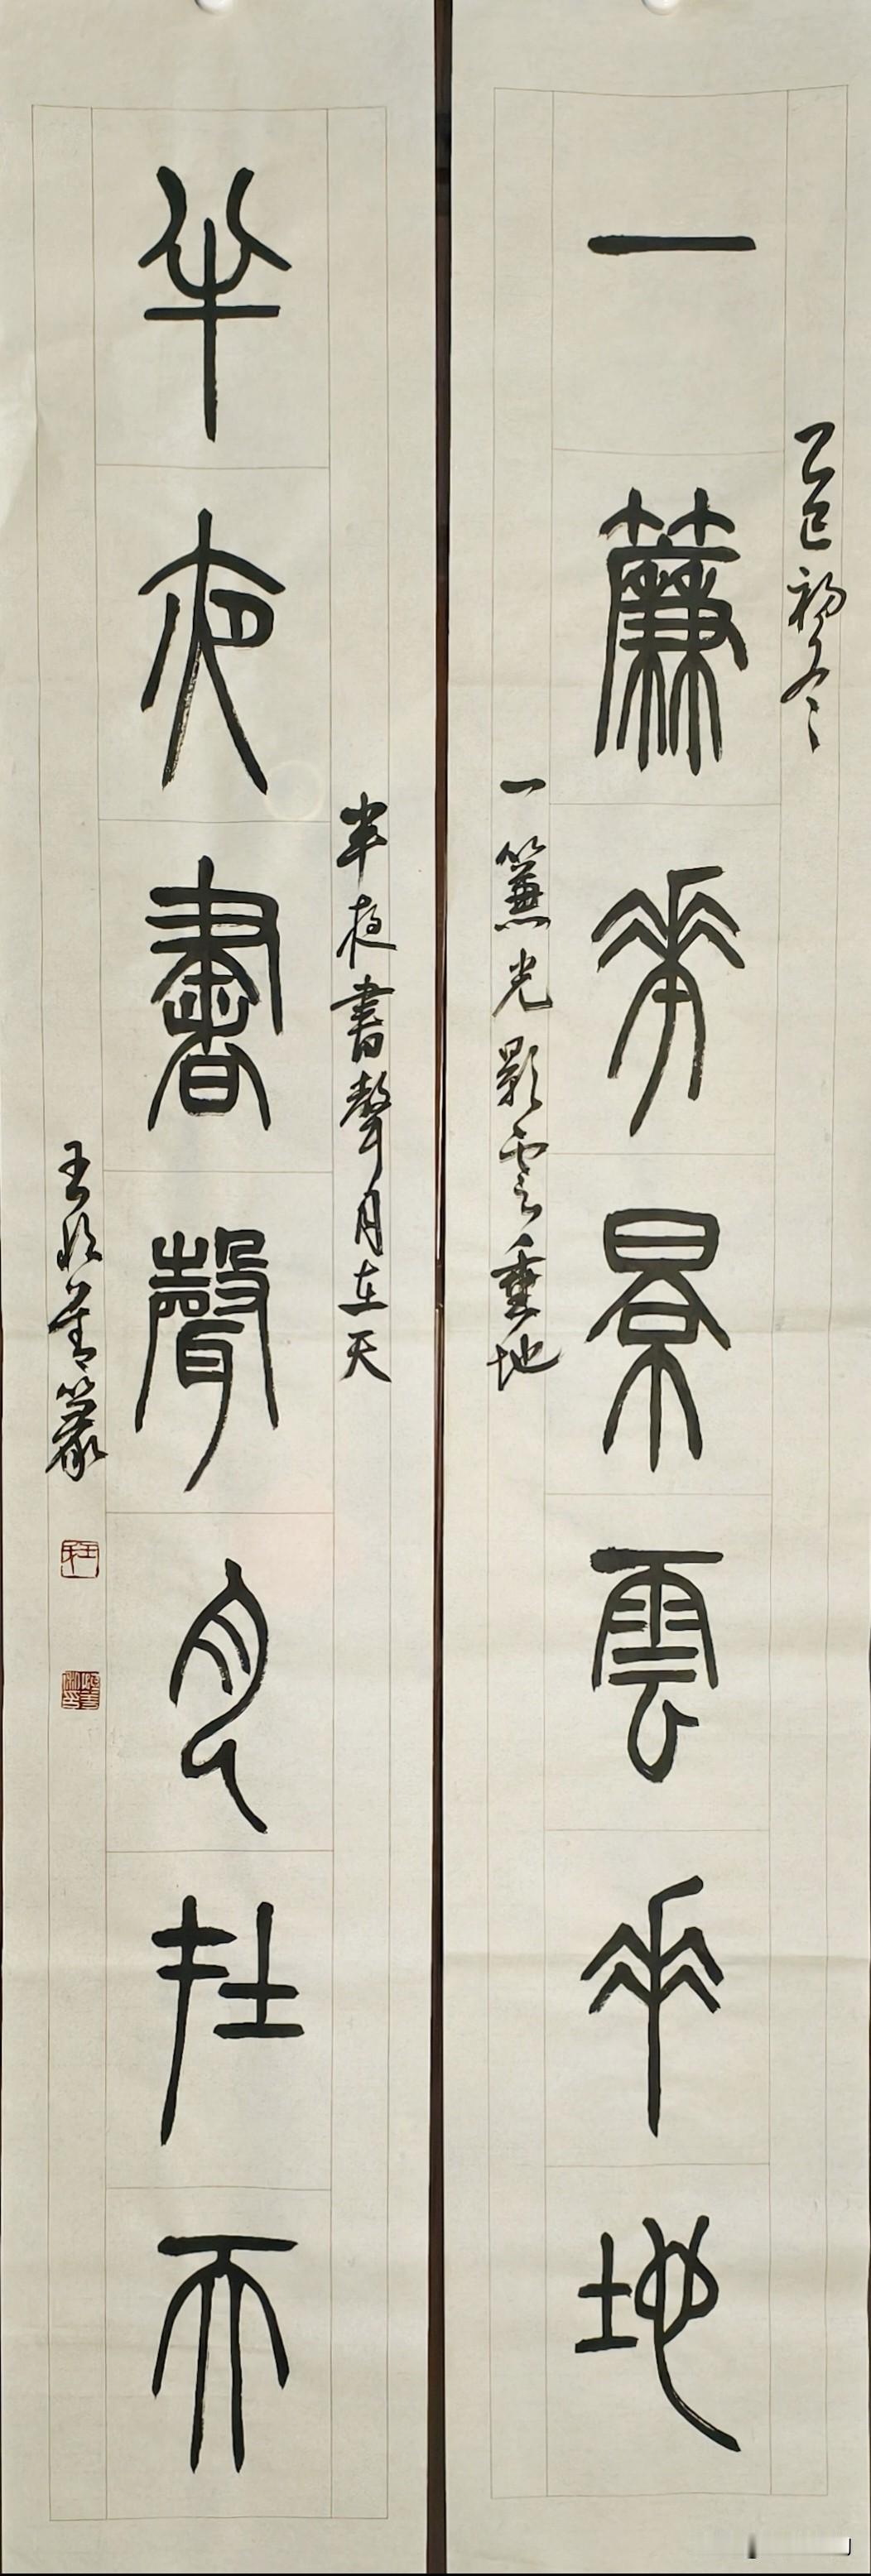 乙巳初冬
一簾華景雲垂地
一簾光影雲垂地
半夜書聲月在天
半夜書聲月在天
王 篆